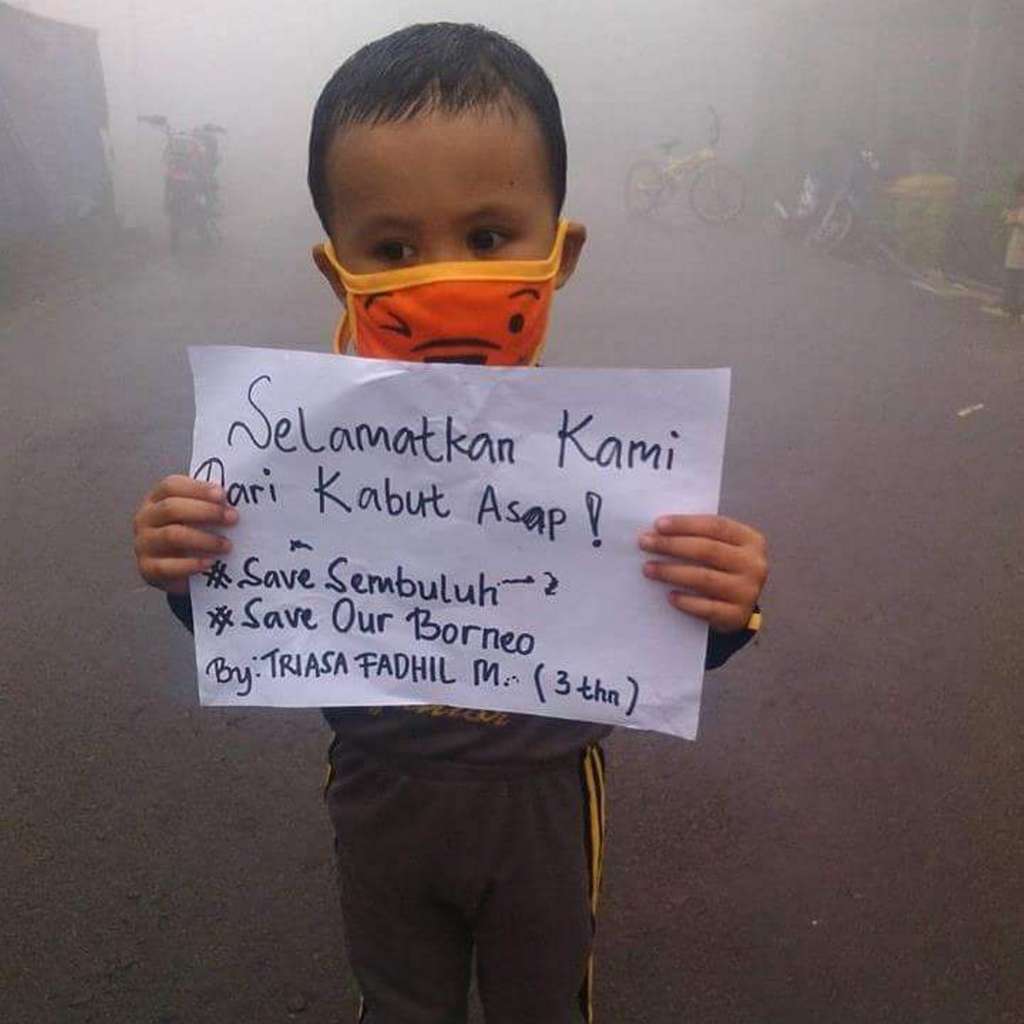 Selamatkan Kami
Dari Kabut Asap !
# Save Sembuluh → 2
# Save Our Borneo
By: TRIASA FADHIL M.. (3 thn)